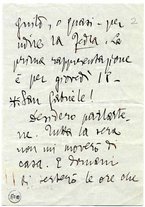 2
giusto, o quasi - per
udire la Fedra. La
prima rappresentazione
è per giovedì 16 -
* San Gabriele!
Desidero parlarte-
ne. Tutta la sera
non mi moverò di
casa. E domani
ti esterò le ore che